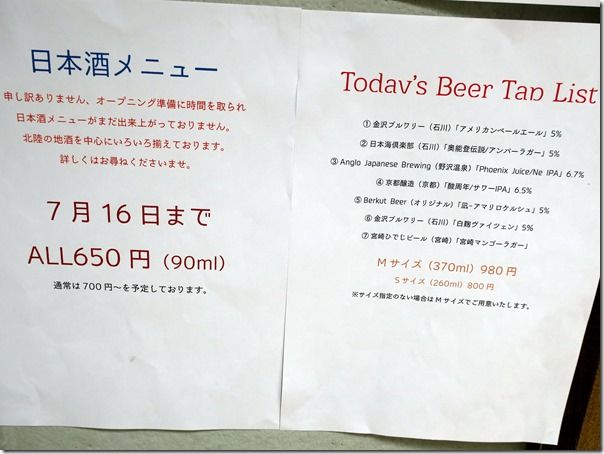 日本酒メニュー
申し訳ありません、オープニング準備に時間を取られ
日本酒メニューがまだ出来上がっておりません。
北陸の地酒を中心にいろいろ揃えております。
詳しくはお尋ねくださいませ。
7月16日まで
ALL650円（90ml）
通常は700円〜を予定しております。
Today's Beer Tap List
① 金沢ブルワリー（石川）「アメリカンペールエール」5%
② 日本海倶楽部（石川）「奥能登伝説/アンバーラガー」5%
③ Anglo Japanese Brewing（野沢温泉）「Phoenix Juice/Ne IPA」6.7%
④ 京都醸造（京都）「酸周年/サワーIPA」6.5%
⑤ Berkut Beer（オリジナル）「凪−アマリロケルシュ」5%
⑥ 金沢ブルワリー（石川）「白麹ヴァイツェン」5%
⑦ 宮崎ひでじビール（宮崎）「宮崎マンゴーラガー」
Mサイズ（370ml）980円
Sサイズ（260ml）800円
※サイズ指定のない場合はMサイズでご用意いたします。